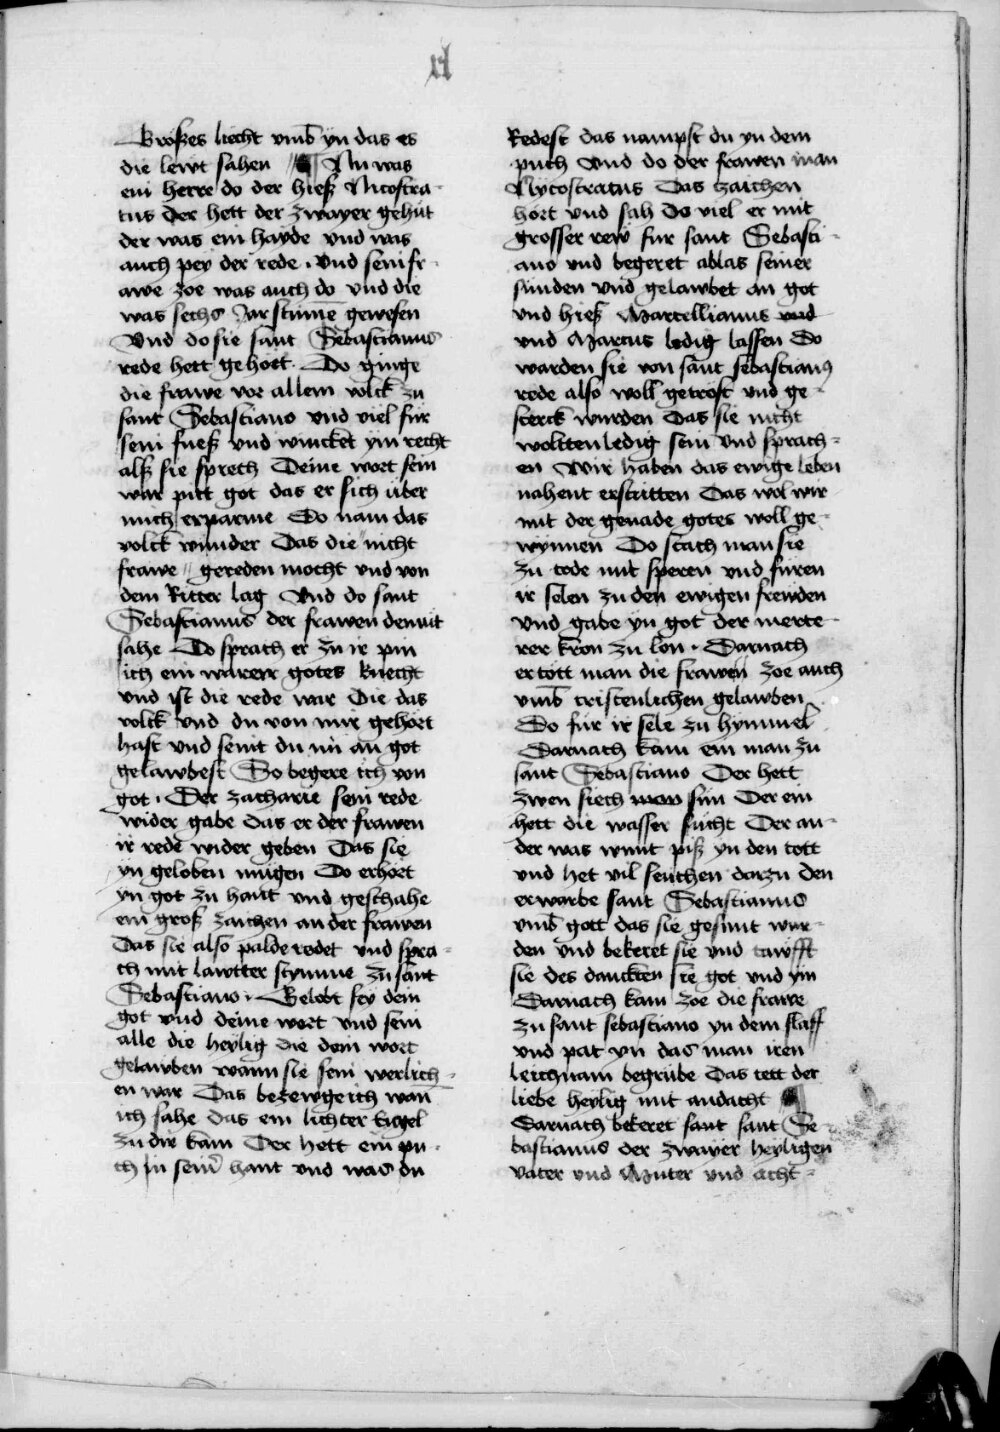 xl
Großes liecht vmb yn das es
die lewt sahen ¶ Nu was
ein herre do der hieß Nicostra-
tus der hett der zwayer gehut
der was ein hayde vnd was
auch pey der rede. vnd sein fr-
awe zoe was auch do vnd die
was sechs Jar stum̄e gewesen
Vnd do sie sant Sebastianus
rede hett gehort. Do ginge
die frawe vor allem volck zu
sant Sebastiano vnd viel fur
sein fueß vnd wincket ym recht
alß sie sprech Deine wort sein
war pitt got das er sich über
mich erparme Do nam das
volck wunder Das die " nicht
frawe " gereden mocht vnd von
dem Ritter lag Vnd do sant
Sebastianus der frawen demut
sahe Do sprach er zu ir pin
ich ein warer gotes knecht
vnd ist die rede war Die das
volck vnd du von mir gehört
hast vnd seint du nu an got
gelawbest So begere ich von
got. Der zacharie sein rede
wider gabe das er der frawen
ir rede wider geben Das sie
yn geloben mügen Do erhört
yn got zu hant vnd geschahe
ein groß zaichen an der frawen
Das sie also palde redet vnd spra-
ch mit lawtter stymme zu sant
Sebastiano. Gelobt sey dein
got vnd deine wort vnd sein
alle die heylig die dem wort
gelawben wann sie sein werlich-
en war Das bezewge ich wan̄
ich sahe das ein lichter Engel
zu dir kam Der hett ein pu-
ch In seiner hant vnd was du
Redest das nampst du yn dem
puch Vnd do der frawen man
Nycostratus Das zaichen
hort vnd sah Do viel er mit
grosser rew fur sant Sebasti-
ano vnd begeret ablas seiner
sünden vnd gelawbet an got
vnd hieß Marcellianus vnd
vnd Marcus ledig lassen Do
warden sie von sant sebastianus
rede also woll getröst vnd ge-
sterck wurden Das sie nicht
woltten ledig sein vnd sprach-
en Wir haben das ewige leben
nahent erstritten Das wol wir
mit der genade gotes woll ge-
wynnen Do stach man sie
zu tode mit speren vnd füren
ir selen zu den ewigen frewden
vnd gabe yn got der merte-
rer kron zu lon. Darnach
ertott man die frawen zoe auch
vmb cristenlichen gelawben
Do für ir sele zu hymmel
Darnach kam ein man zu
sant Sebastiano Der hett
zwen siech man sün Der ein
hett die wasser sucht Der an-
der was wunt piß yn den tott
vnd het vil seuchen darzu den
erwarbe sant Sebastianus
vmb gott das sie gesunt wur-
den vnd bekeret sie vnd tawfft
sie des danckten sie got vnd ym
Darnach kam zoe die frawe
zu sant sebastiano yn dem slaff
vnd pat yn das man iren
leichnam begrübe Das tett der
liebe heylig mit andacht ¶
Darnach bekeret sant sant Se-
bastianus der zwayer heyligen
vater vnd Muter vnd acht-